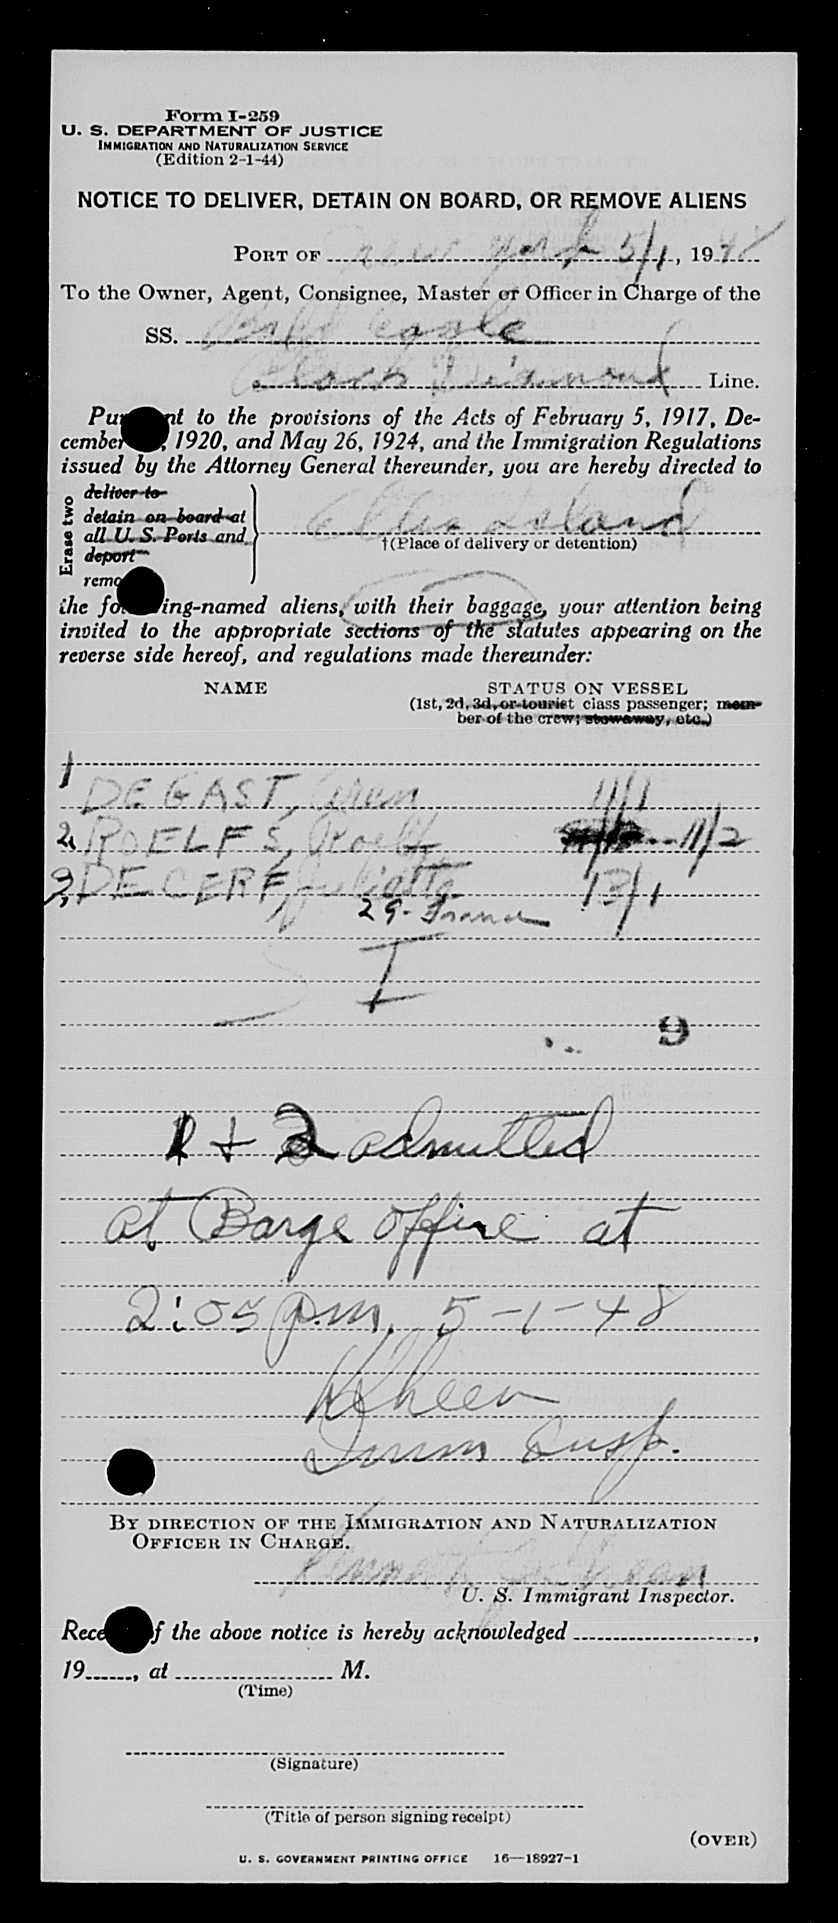 Form I-259
U. S. DEPARTMENT OF JUSTICE
IMMIGRATION AND NATURALIZATION SERVICE
(Edition 2-1-44)
NOTICE TO DELIVER, DETAIN ON BOARD, OR REMOVE ALIENS
PORT OF New York 5/1, 1948
To the Owner, Agent, Consignee, Master or Officer in Charge of the
SS. Eagle
Black Diamond Line.
Pur nt to the provisions of the Acts of February 5, 1917, De-
cember , 1920, and May 26, 1924, and the Immigration Regulations
issued by the Attorney General thereunder, you are hereby directed to
Erase two
deliver to
detain on board at
all U. S. Ports and
deport
remo
Ellis Island
†(Place of delivery or detention)
the fo ing-named aliens, with their baggage, your attention being
invited to the appropriate sections of the statutes appearing on the
reverse side hereof, and regulations made thereunder:
NAME STATUS ON VESSEL
(1st, 2d, 3d, or tourist class passenger; mem-
ber of the crew; stowaway, etc.)
1 DE GAST, 11/1
2. ROELFS, Roelf 11/2
3, DE CERF, Juliette 13/1
29- France
I
9
1 + 2 admitted
at Barge office at
2:05 p.m. 5-1-48
Immi Insp.
BY DIRECTION OF THE IMMIGRATION AND NATURALIZATION
OFFICER IN CHARGE.
Kenneth
U. S. Immigrant Inspector.
Rece f the above notice is hereby acknowledged ,
19 , at M.
(Time)
(Signature)
(Title of person signing receipt)
(OVER)
U. S. GOVERNMENT PRINTING OFFICE 16—18927-1